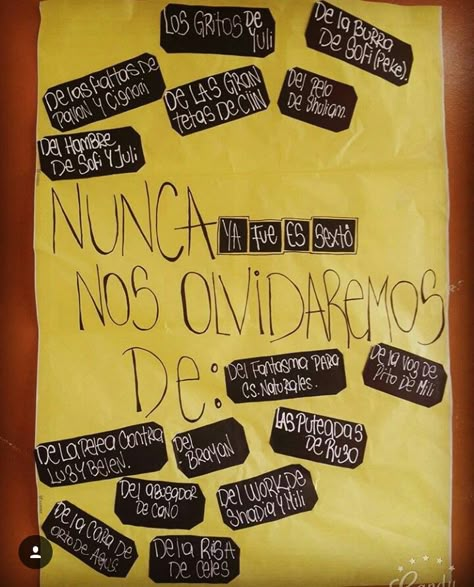 LOS GRITOS DE
JULI
DE LA BURRA
DE SOFI (PEKE).
DE LAS FALTAS DE
PALLON Y CIGNONI
DE LAS GRAN
TETAS DE CINN
DEL PELO
DE
DEL HAMBRE
DE SOFI Y JULI
NUNCA
YA FUE ES SEXTO
NOS OLVIDAREMOS
DE:
DEL FANTASMA PARA
CS. NATURALES.
DE LA VOZ DE
PITO DE MILI
LAS PUTEADAS
DE RUSO
DE LA PELEA CONTRA
LUZ Y BELEN.
DEL
BRAYAN
DEL WORK DE
SHADIA Y MILI
DEL ABOSADOR
DE CANO
DE LA CARA DE
ORTO DE AGUS
DE LA RISA
DE CELES